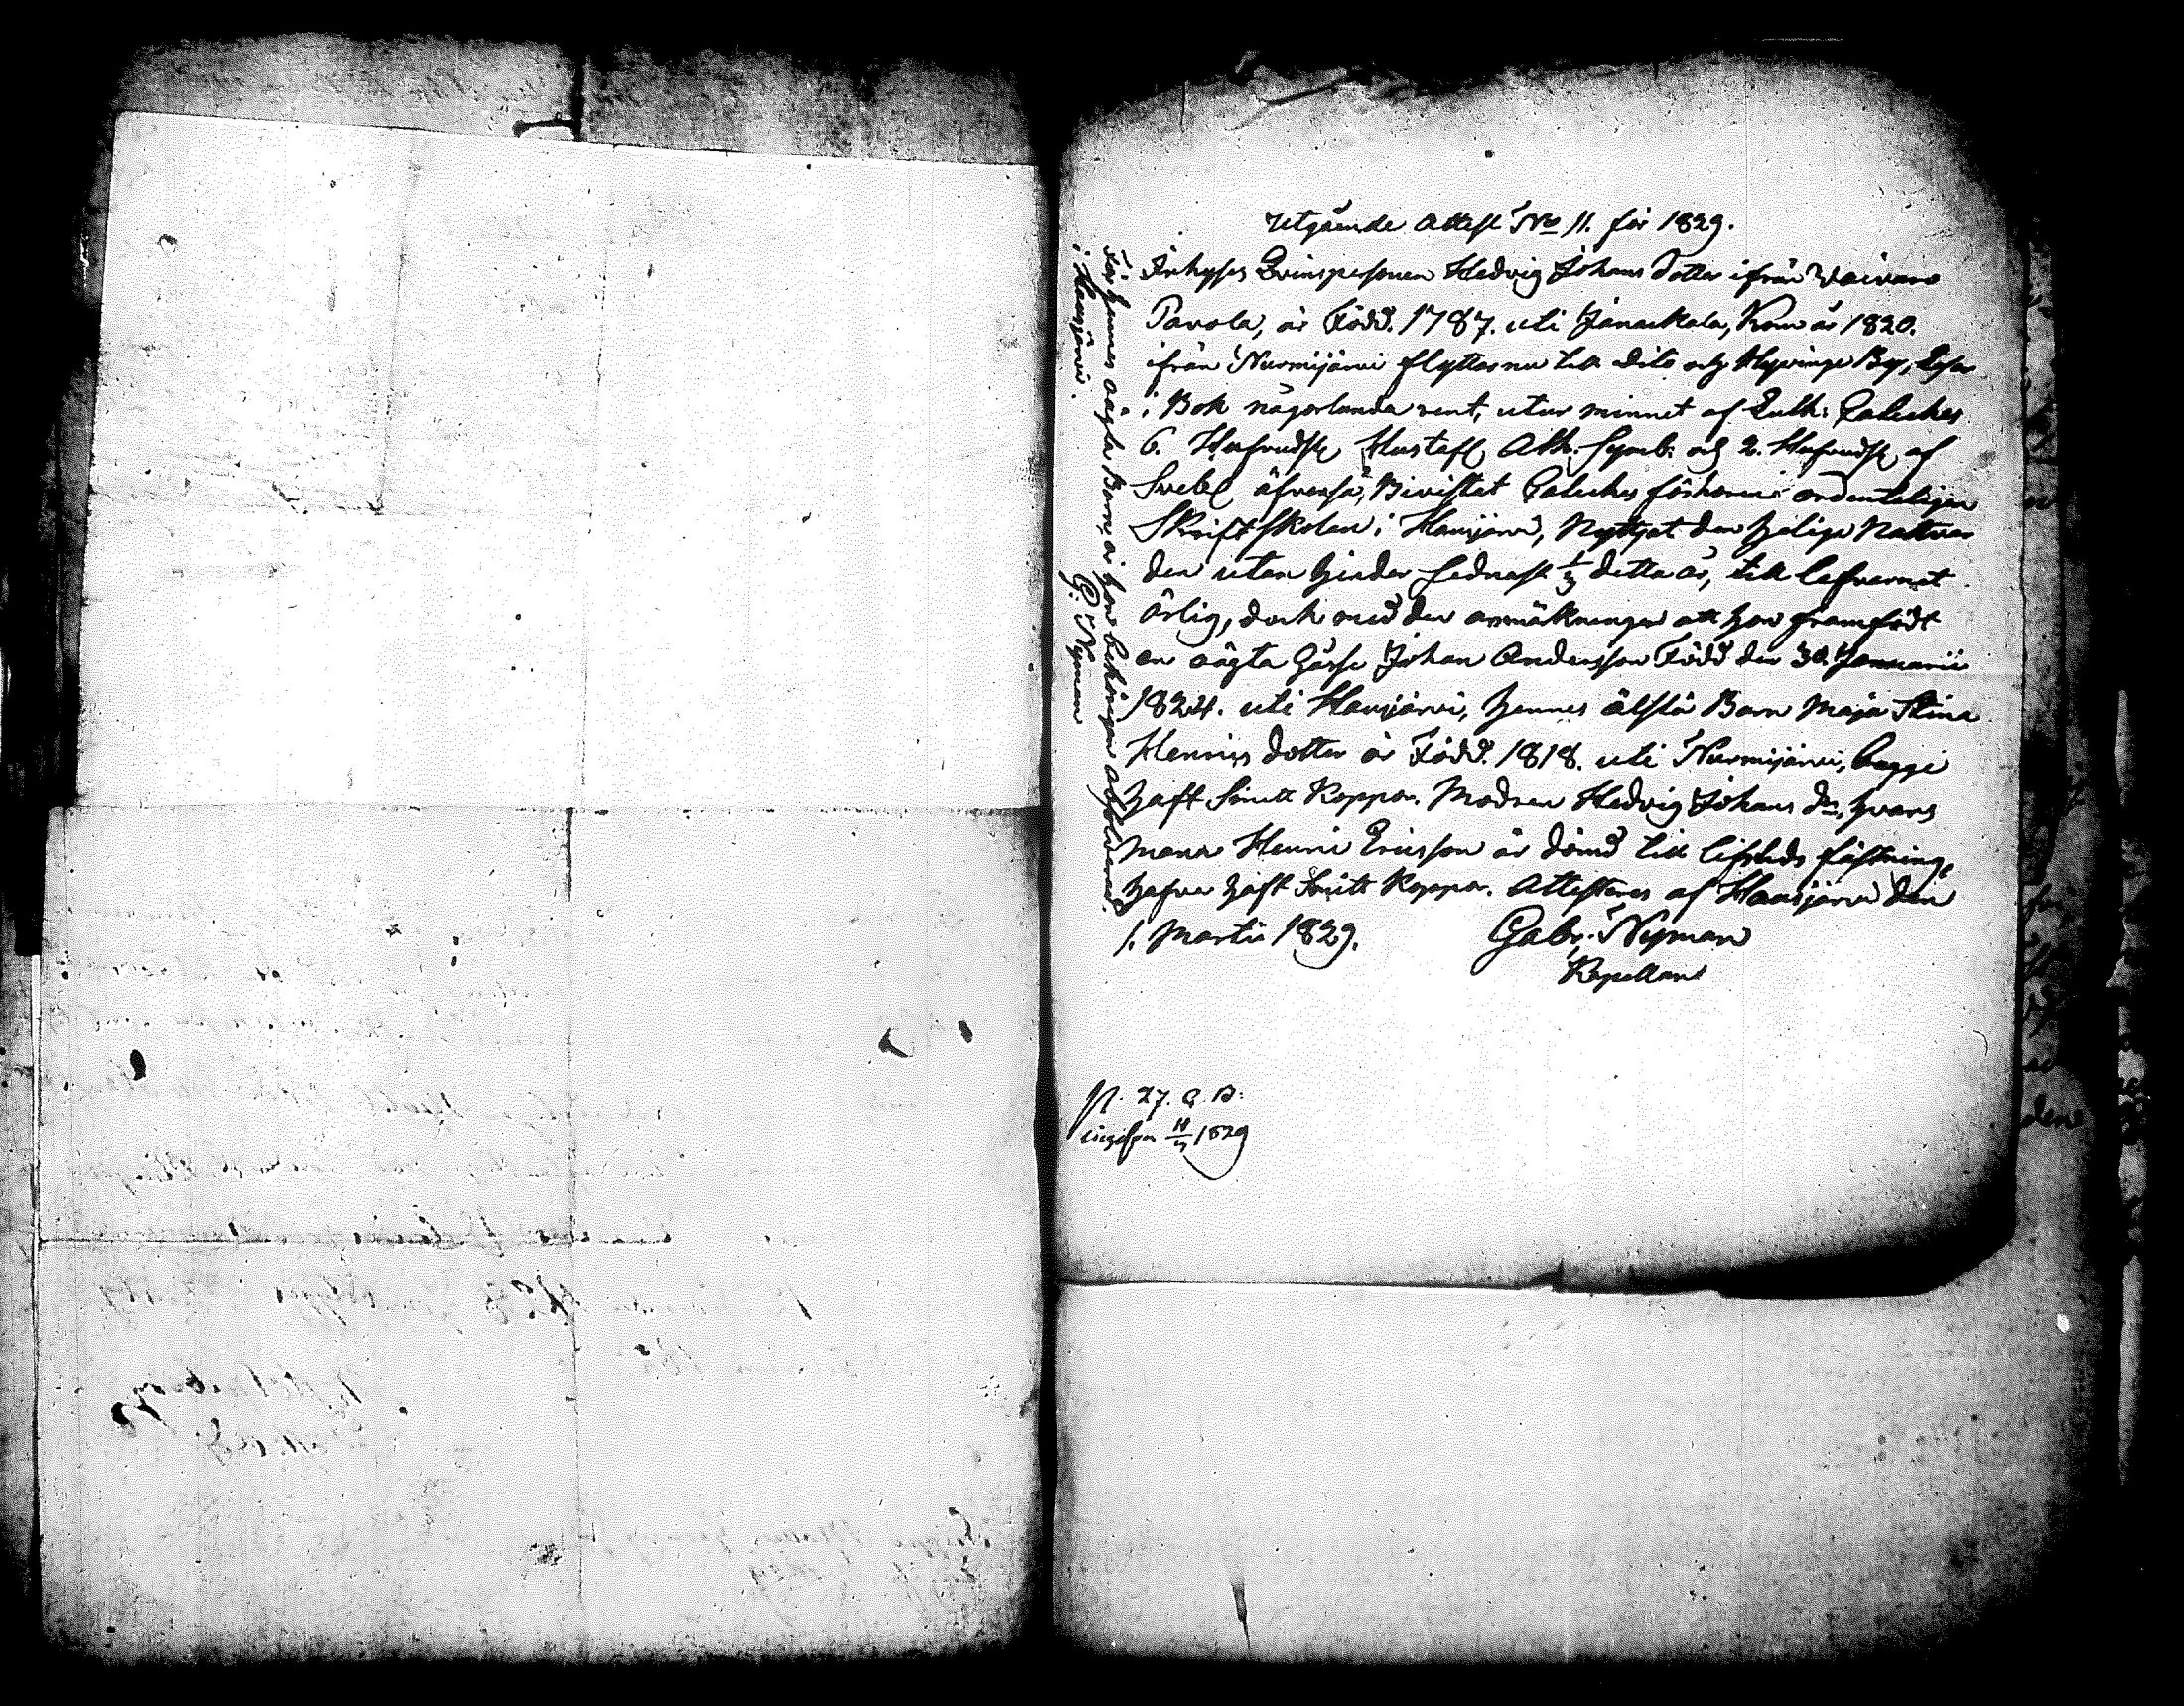 Utgående Attest No 11. för 1829.
Inhyses Qvinspersonen Hedvig Johans dotter ifrån Waivars
Pavola, är Född. 1787. uti Janackala, Kom år 1820.
ifrån Nurmijärvi flyttar nu till dito och Hyvinge By, Läser
i Bok någorlunda rent, utur minnet af Luth: Cateches
6. Hufvudst, Hustafl, Ath. Symb. och 2. Hufvudst, af
Svebel äfvenså, Bivistat Catechesförhören ordenteligen
Skriftskolan i Hausjärvi, Nyttjat den heliga Nattvar
den utan hinder sednast 1/3 detta år, till lefvernet
ärlig, dock med den anmärkningen att hon framfödt
en oägta Gosse Johan Andersson Född den 30. Januarii
1824. uti Hausjärvi, hennes älsta Barn Maja Stina
Henrics dotter är Född. 1818. uti Nurmijärvi, bägge
haft Smitt Koppor. Modren Hedvig Johans dr, hvars
mann Henric Ericsson är dömd till lifstids fästning,
hafver haft Smitt Koppor. Attesteras af Hausjärvi den
1. Martii 1829. Gabr. Nyman
Kapellan
För hennes oägta Barn är hon behörigen absolverad
i Hausjärvi. G. Nyman
N. 27. A. B:
ingifven 11/3 1829